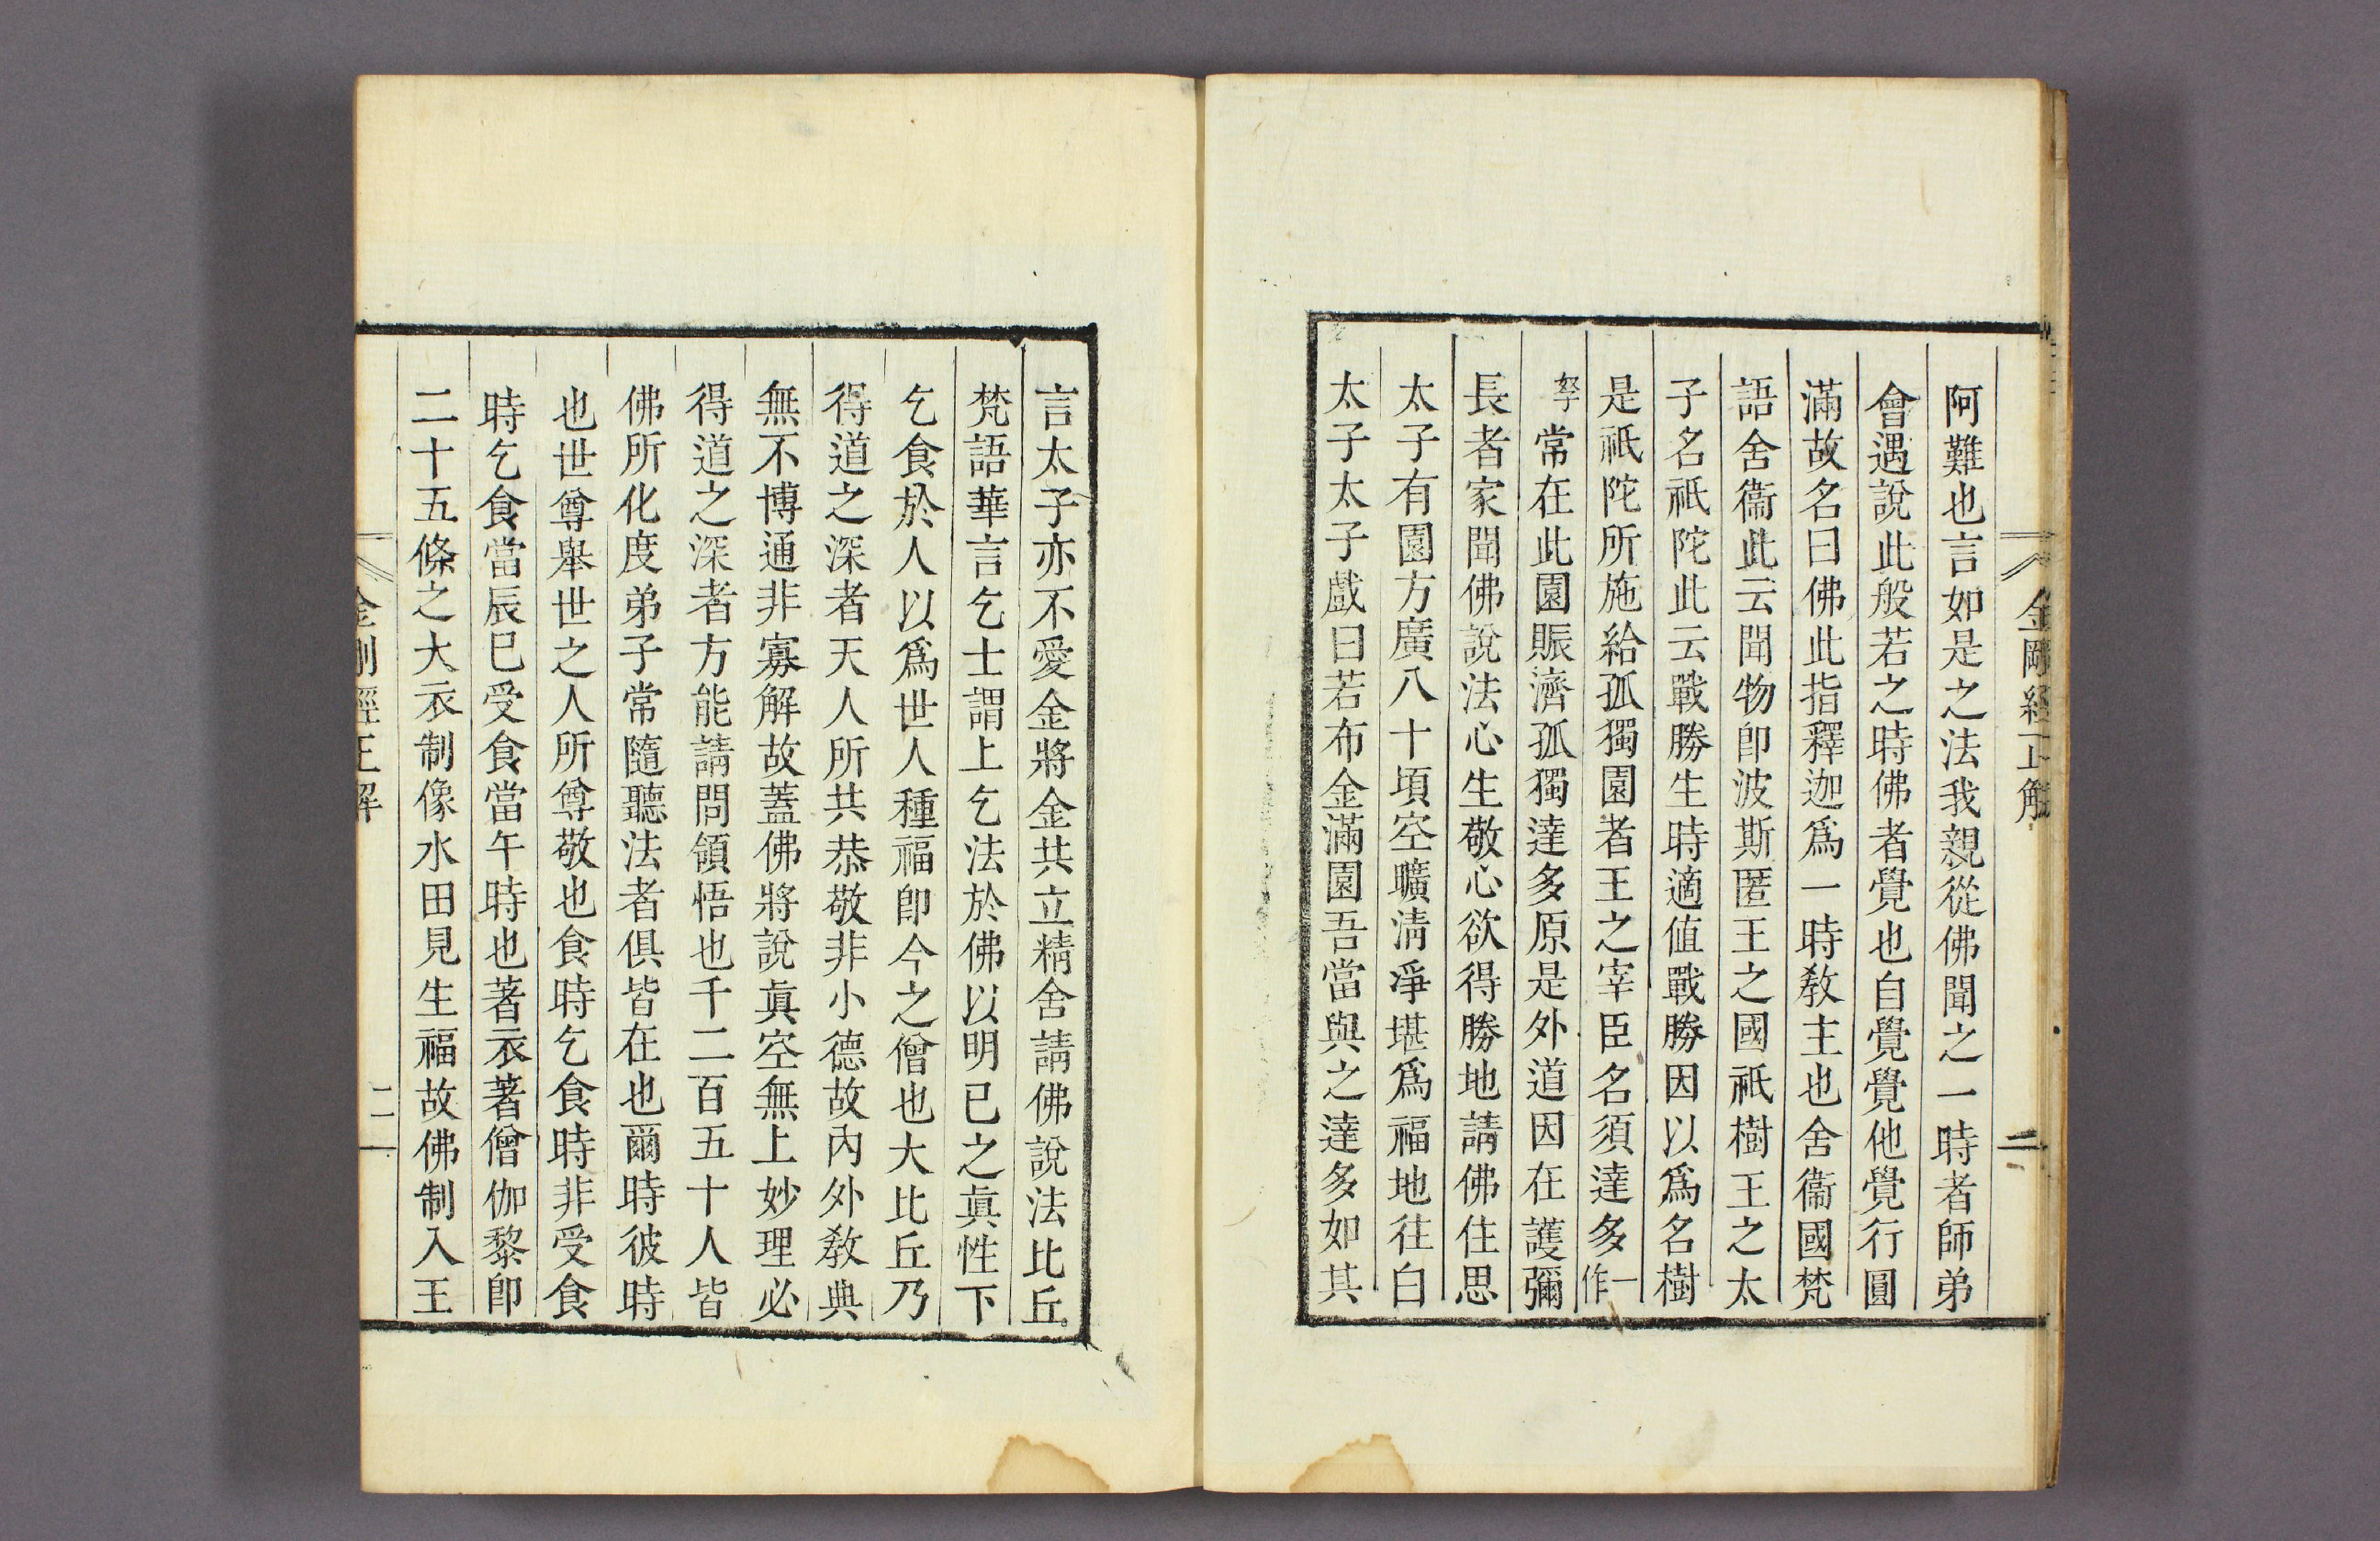 金剛經正解
二
阿難也言如是之法我親從佛聞之一時者師弟
會遇說此般若之時佛者覺也自覺覺他覺行圓
滿故名曰佛此指釋迦爲一時敎主也舍衞國梵
語舍衞此云聞物卽波斯匿王之國祇樹王之太
子名祇陀此云戰勝生時適值戰勝因以爲名樹
是祇陀所施給孤獨園者王之宰臣名須達多一作
拏常在此園賑濟孤獨達多原是外道因在護彌
長者家聞佛說法心生敬心欲得勝地請佛住思
太子有園方廣八十頃空曠淸凈堪爲福地往白
太子太子戲曰若布金滿園吾當與之達多如其
言太子亦不愛金將金共立精舍請佛說法比丘
梵語華言乞士謂上乞法於佛以明已之眞性下
乞食於人以爲世人種福卽今之僧也大比丘乃
得道之深者天人所共恭敬非小德故內外敎典
無不博通非寡解故蓋佛將說眞空無上妙理必
得道之深者方能請問領悟也千二百五十人皆
佛所化度弟子常隨聽法者俱皆在也爾時彼時
也世尊舉世之人所尊敬也食時乞食時非受食
時乞食當辰巳受食當午時也著衣著僧伽黎卽
二十五條之大衣制像水田見生福故佛制入王
金剛經正解